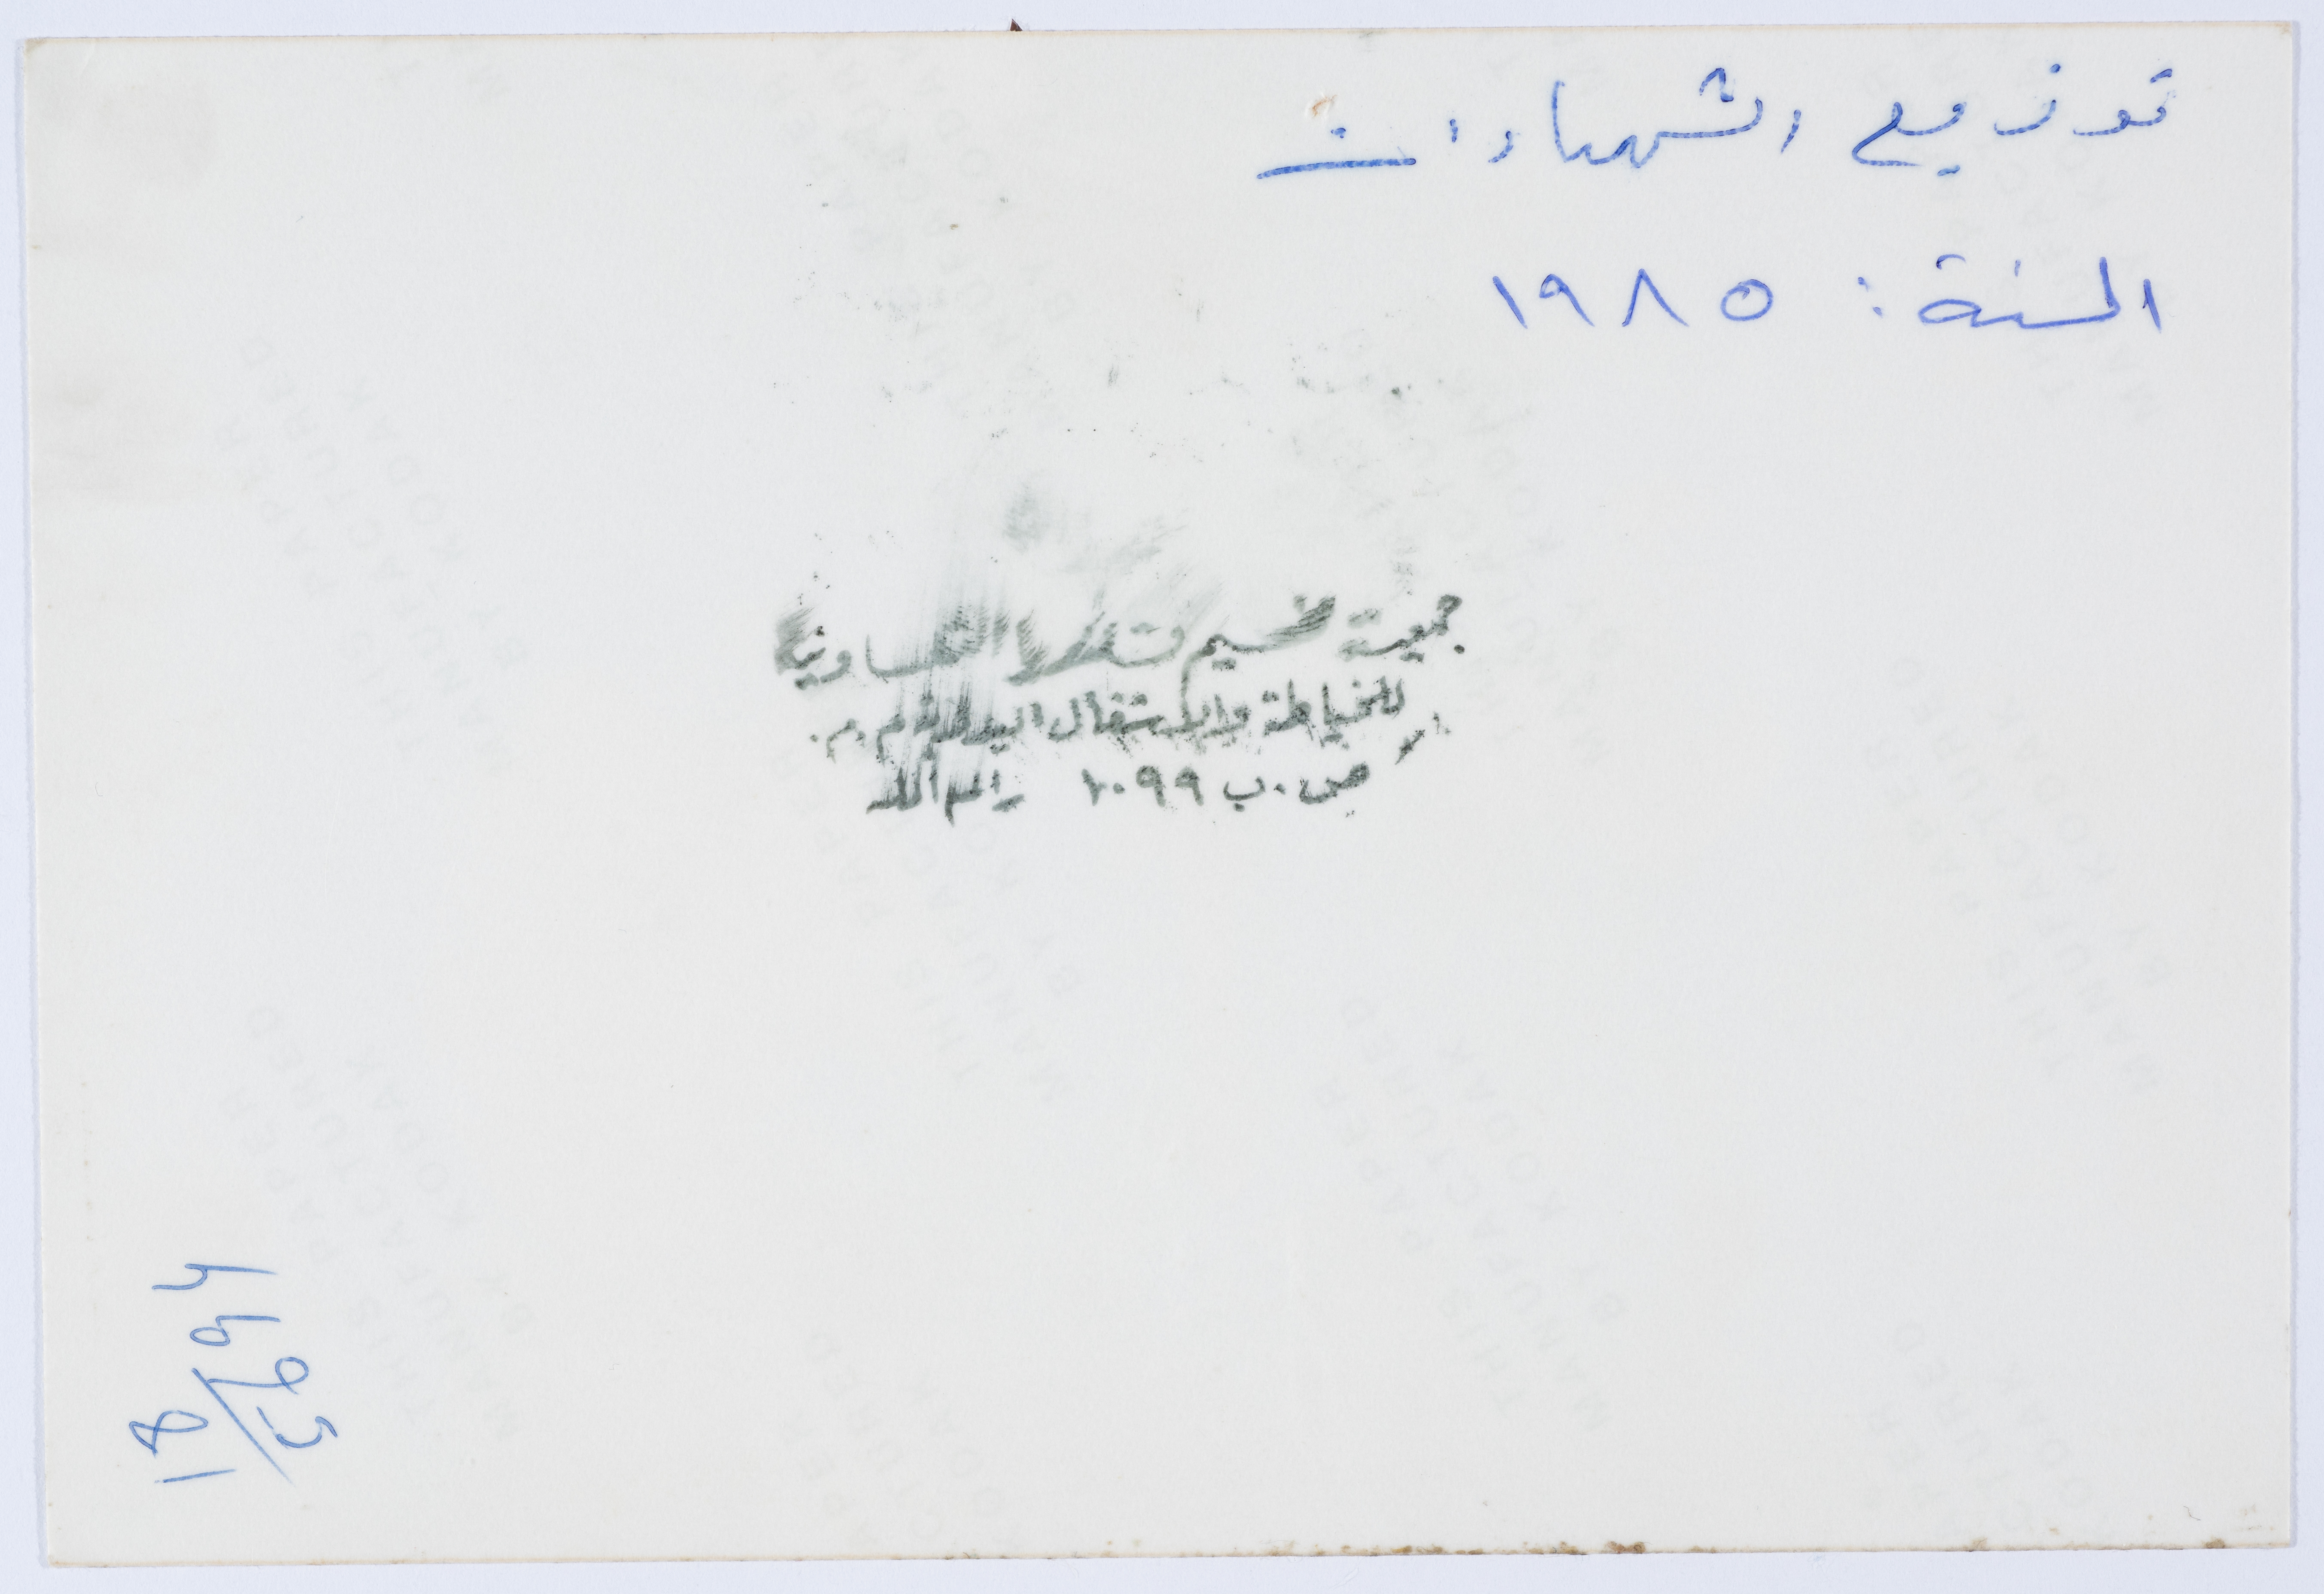 توزيع الشهادات
السنة: ١٩٨٥
جمعية مخيم قلنديا التعاونية
للخياطة والاشغال اليدوية م.م.
ص.ب ١٠٩٩ رام الله
THIS PAPER
MANUFACTURED
BY KODAK